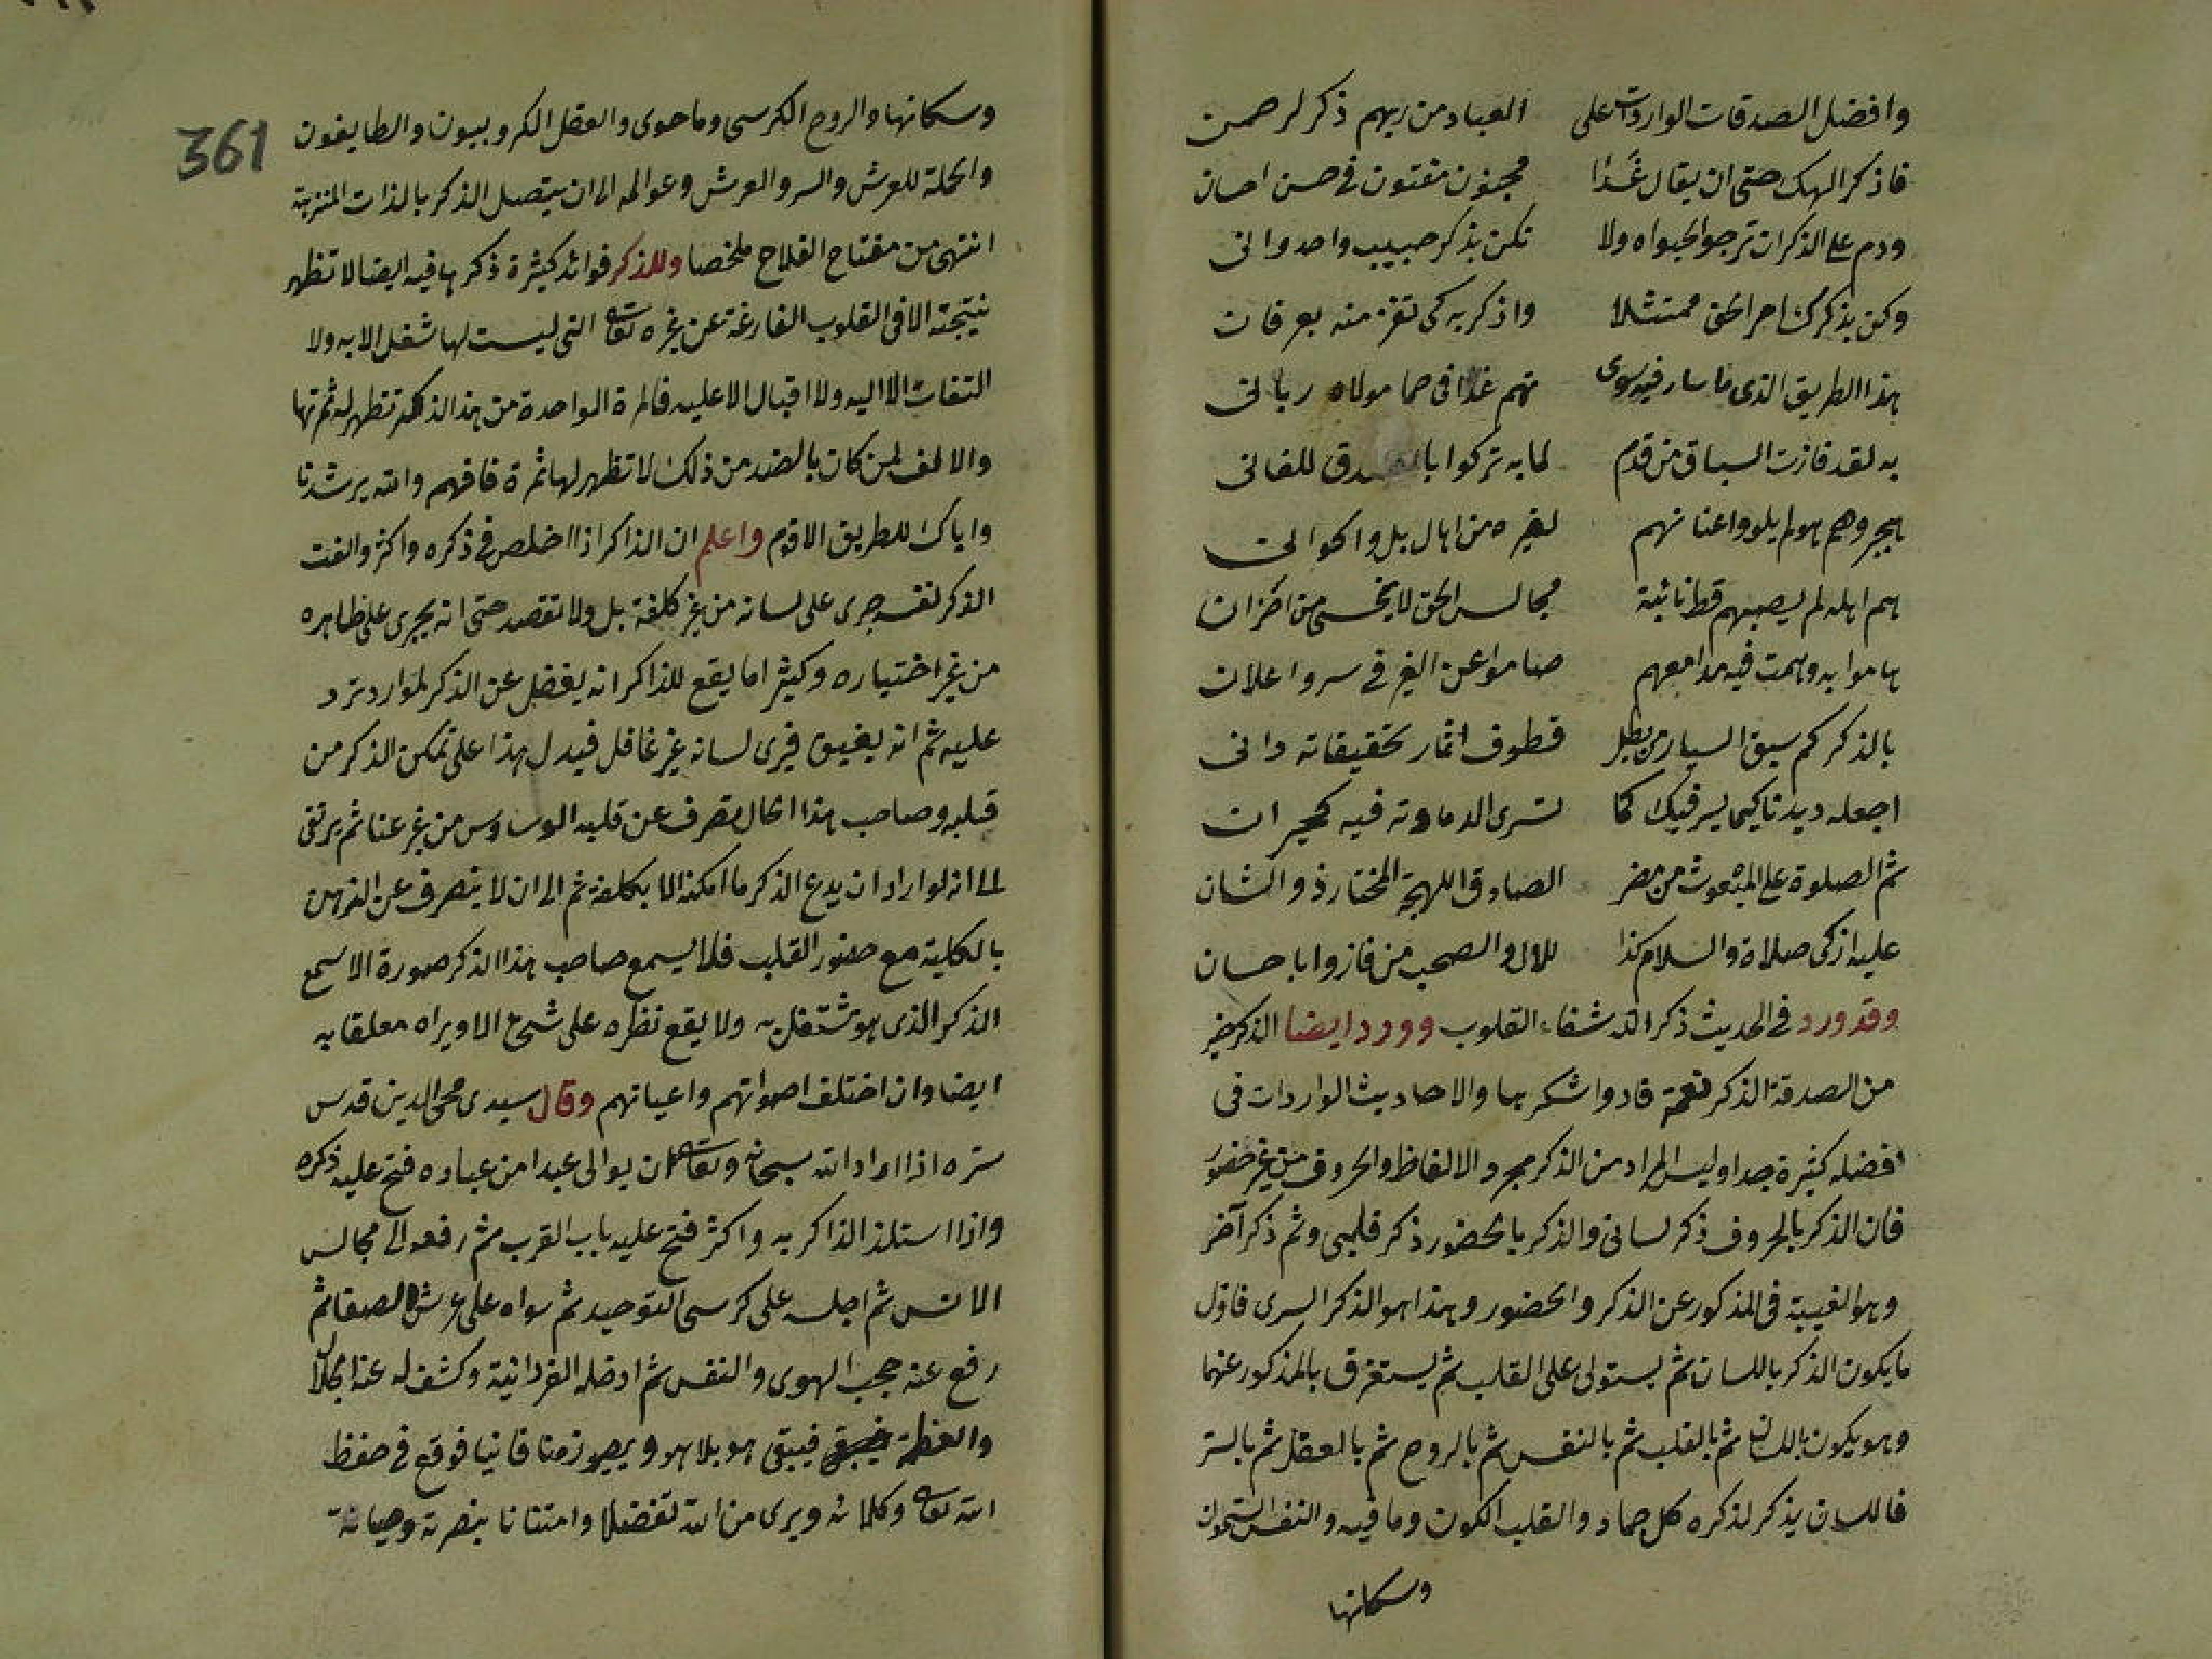 وافضل الصدقات الواردات على العباد من ربهم ذكر لرحمن
فاذكر الهك حتى ان يقال غدا مجنون مفتون في حسن احسان
ودم على الذكر ان ترجو لجبواه ولا تكن بذكر حبيب واحد واني
وكن بذكرك امر الحق ممتثلا واذكر به كى تفز منه بعرفان
هذا الطريق الذى ما سار فيه سوى تهم غدا فى حما مولاه رباني
به لقد فازت السباق من قدم لما به تركوا بالصدق للفاني
هم اهله لم يصبهم قط نائبة مجالس الحق لا يخشى من احزان
هاموا به وهمت فيه مدامعهم صاموا عن الغير في سر واعلان
بالذكر كم سبق السيار من بطل قطوف اثمار تحقيقاته داني
اجعله ديدنا كيما يسر فيك كما
ثم الصلوة على المبعوث من مضر الصادق اللهجة المختار ذو الشان
عليه ازكى صلاة والسلام كذا للال والصحب من فازوا باحسان
وقد ورد في الحديث ذكر الله شفاء القلوب وورد ايضا الذكر خير
من الصدقة الذكر نعمة فادوا شكرها والاحاديث الواردات فى
افضله كثيرة جدا وليس المراد من الذكر مجرد الالفاظ والحروف من غير حضور
فان الذكر بالحروف ذكر لسانى والذكر بالحضور ذكر قلبي وثم ذكر آخر
وهو الغيبة فى المذكور عن الذكر والحضور وهذا هو الذكر السرى فاول
ما يكون الذكر باللسان ثم يستولى على القلب ثم يستغرق بالمذكور عنهما
وهو يكون باللسان ثم بالقلب ثم بالنفس ثم بالروح ثم بالعقل ثم بالسر
فاللسان يذكر لذكره كل جماد والقلب الكون وما فيه والنفس السموات
وسكانها
361
وسكانها والروح الكرسى وما حوى والعقل الكروبيون والطايفون
والحملة للعرش والسر والعرش وعوالمه الى ان يتصل الذكر بالذات المنزهة
انتهى من مفتاح الفلاح ملخصا وللذكر فوائد كثيرة ذكرها فيه ايضا لا تظهر
نتيجته الا فى القلوب الفارغة عن غيره تعالى التى ليست لها شغل الا به ولا
التفات الا اليه ولا اقبال الا عليه فالمرة الواحدة من هذا الذكر تظهر له ثمرتها
والالف لمن كان بالضد من ذلك لا تظهر لها ثمرة فافهم والله يرشدنا
واياك للطريق الاقوم واعلم ان الذاكر اذا اخلص في ذكره واكثر والفت
الذكر نفسه جرى على لسانه من غير كلفة بل ولا تقصد حتى انه يجرى على ظاهره
من غير اختياره وكثيرا ما يقع للذاكر انه يغفل عن الذكر لموارد ترد
عليه ثم انه يفيق فيرى لسانه غير غافل فيدل هذا على تمكن الذكر من
قلبه وصاحب هذا الحال تصرف عن قلبه الوساوس من غير عنا ثم يرتقى
الى انه لو اراد ان يدع الذكر ما امكنه الا بكلفة ثم الى ان لا ينصرف عن
بالكلية مع حضور القلب فلا يسمع صاحب هذا الذكر صورة الا سمع
الذكر الذى هو مشتغل به ولا يقع نظره على شيء الا ويراه معلقا به
ايضا وان اختلف اصواتهم واعيانهم وقال سيدى محى الدين قدس
سره اذا اراد الله سبحانه وتعالى ان يوالى عبدا من عباده فتح عليه ذكره
واذا استلذ الذاكر به واكثر فتح عليه باب القرب ثم رفعه الى مجالس
الانس ثم اجلسه على كرسى التوحيد ثم سواه على عرش الصفا ثم
رفع عنه حجب الهوى والنفس ثم ادخله الفردانية وكشف له عن الجلال
والعظمة فيبقى هو بلا هو ويصير زمنا فانيا فوقع في حفظ
الله تعالى وكلمانه ويرى من الله تفضلا وامتنانا بنصرته وصيانة